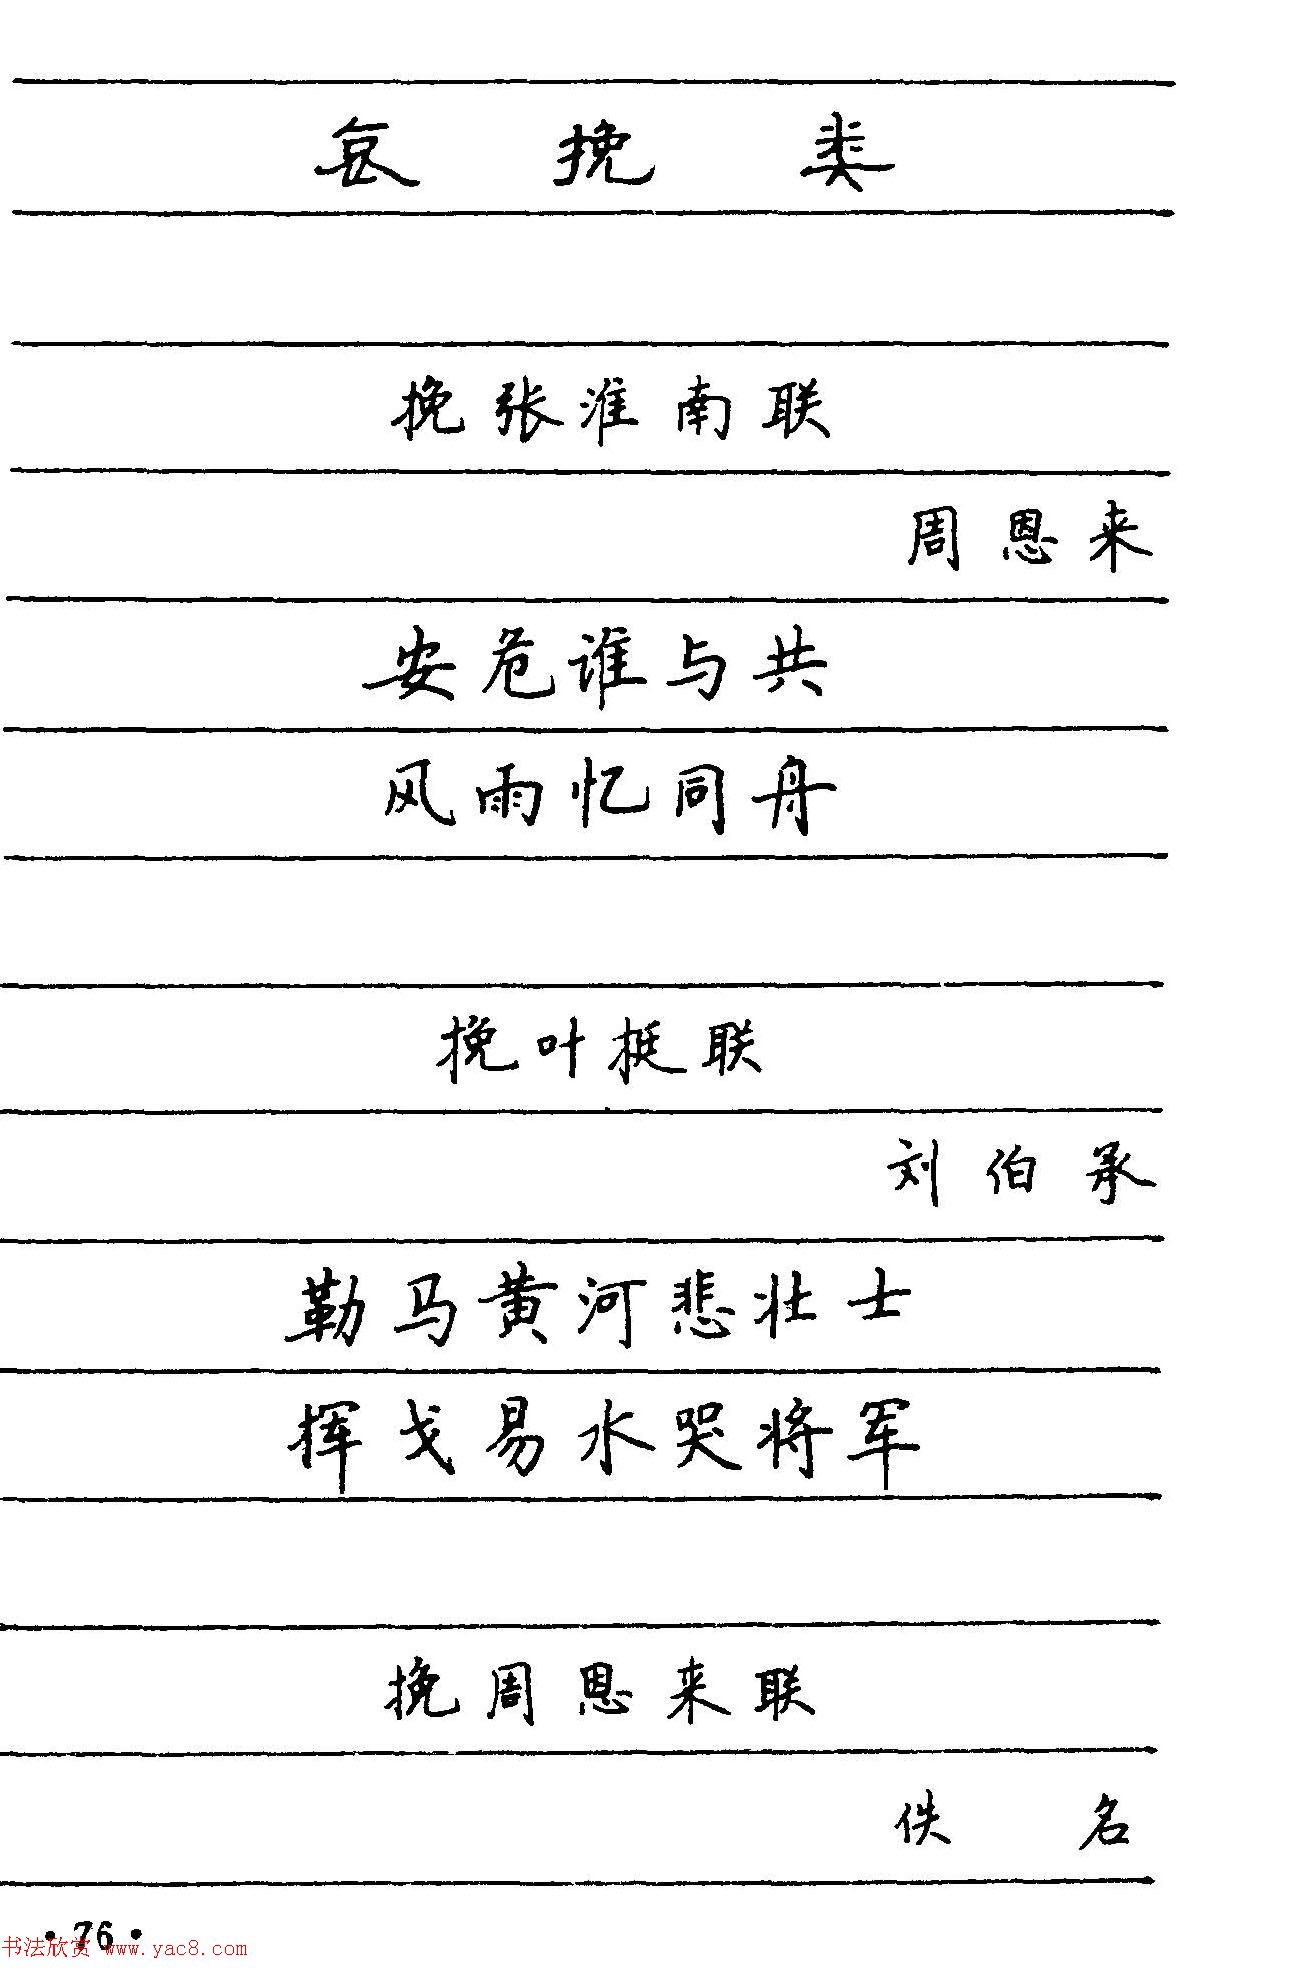 哀挽类
挽张淮南联
周恩来
安危谁与共
风雨忆同舟
挽叶挺联
刘伯承
勒马黄河悲壮士
挥戈易水哭将军
挽周恩来联
佚名
·76·
书法欣赏 www.yac8.com